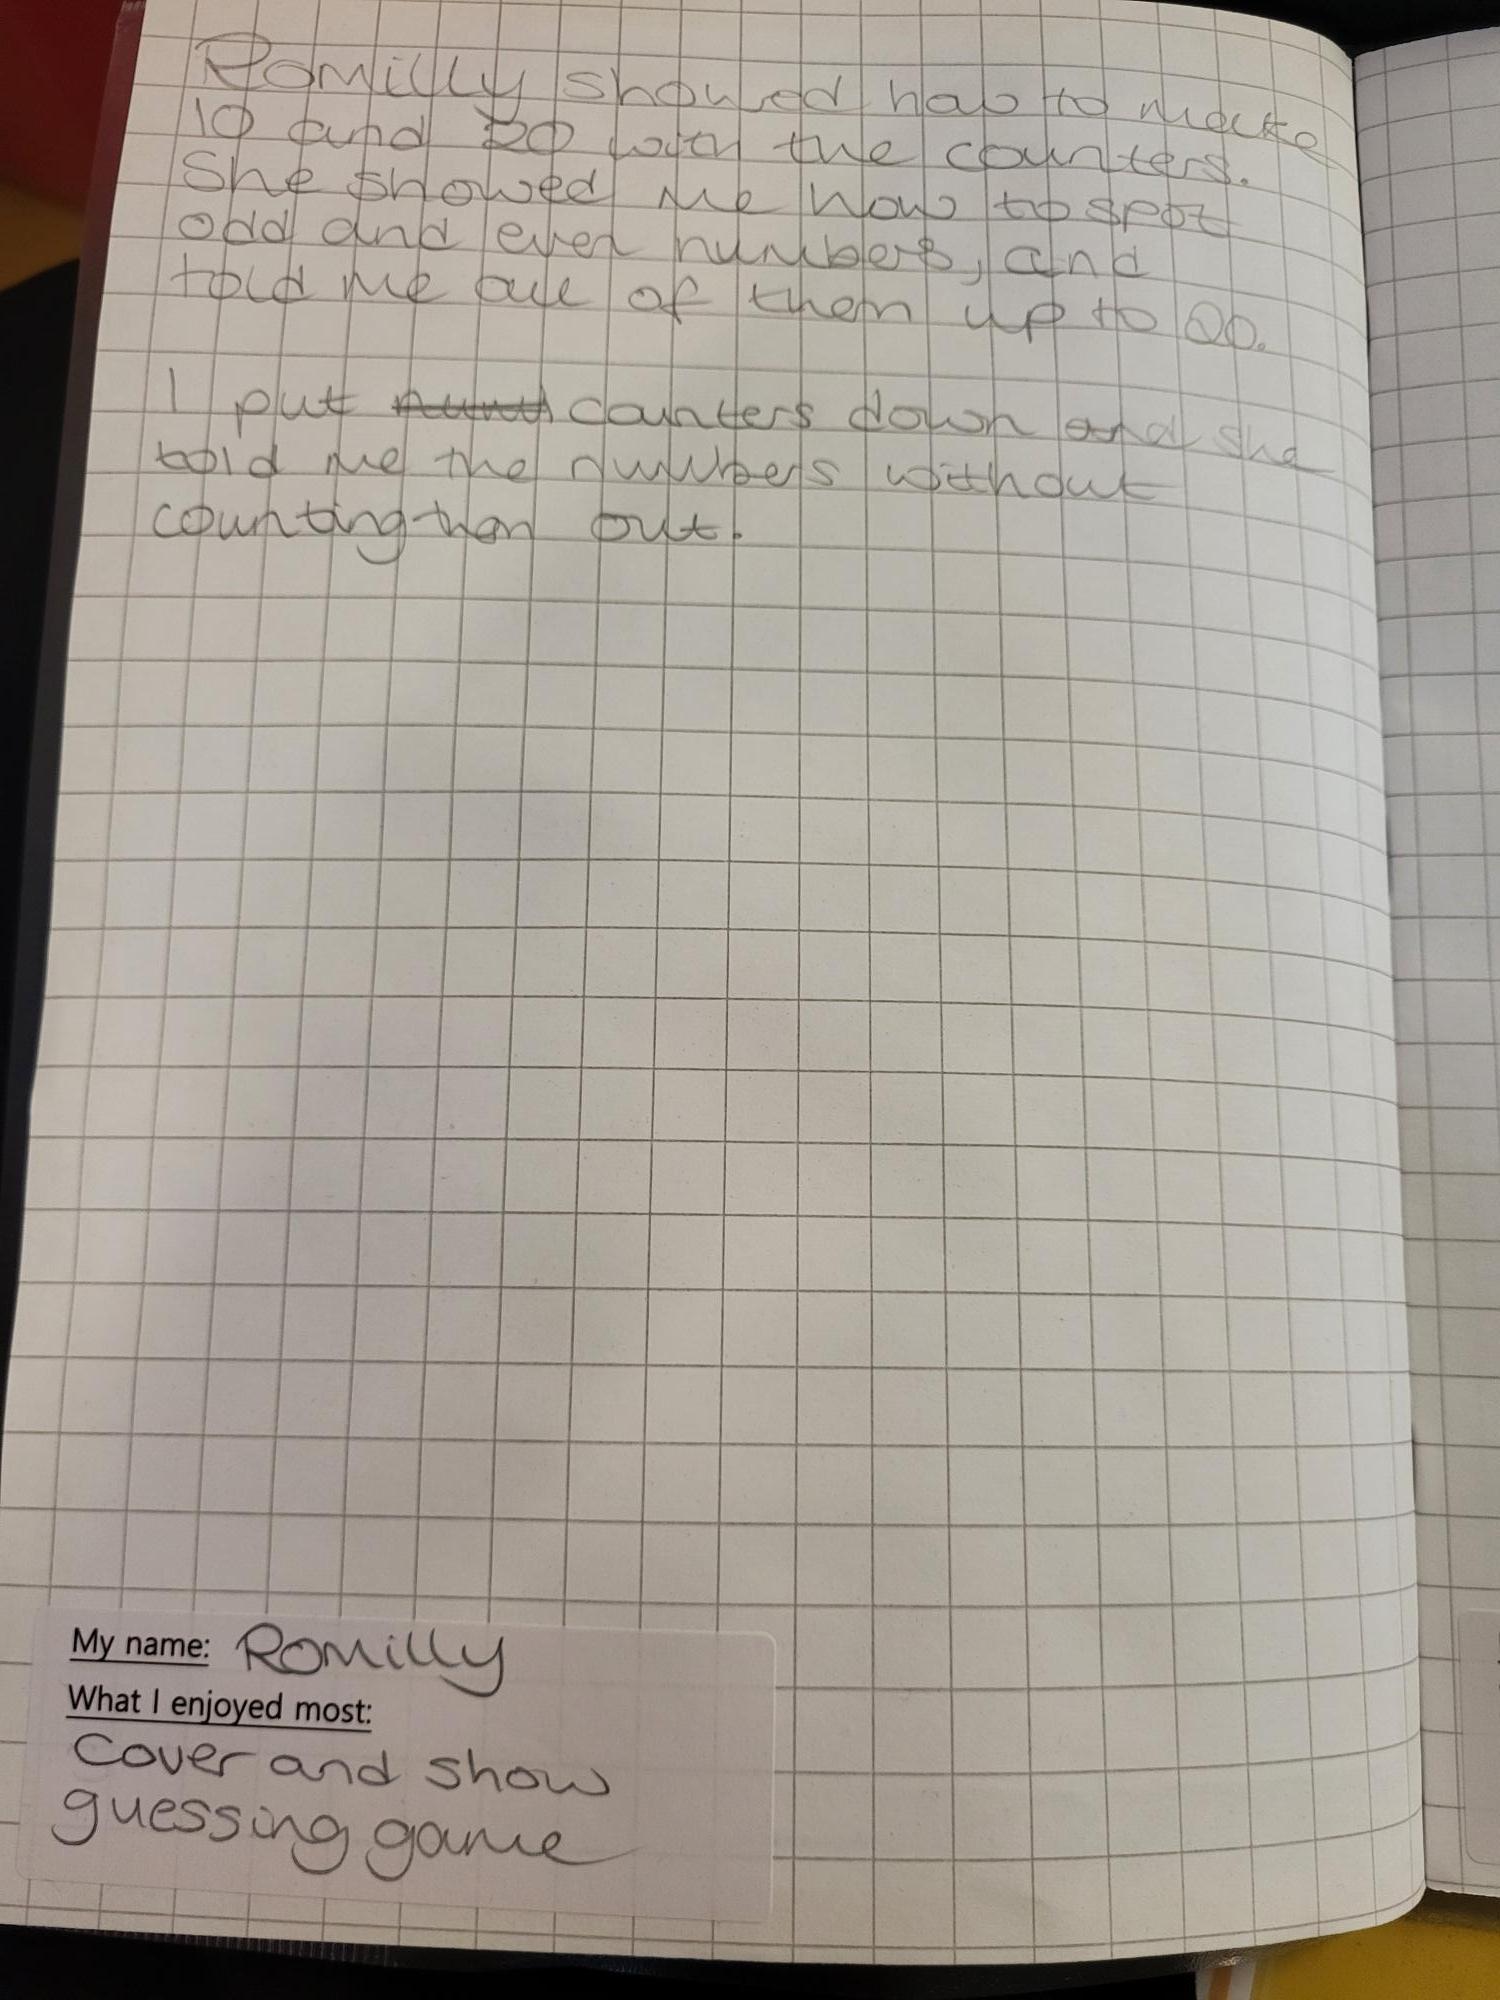 Romilly showed how to make
10 and 20 with the counters.
She showed me how to spot
odd and even numbers, and
told me all of them up to 20.
I put counters down and she
told me the numbers without
counting them out.
My name: Romilly
What I enjoyed most:
cover and show
guessing game